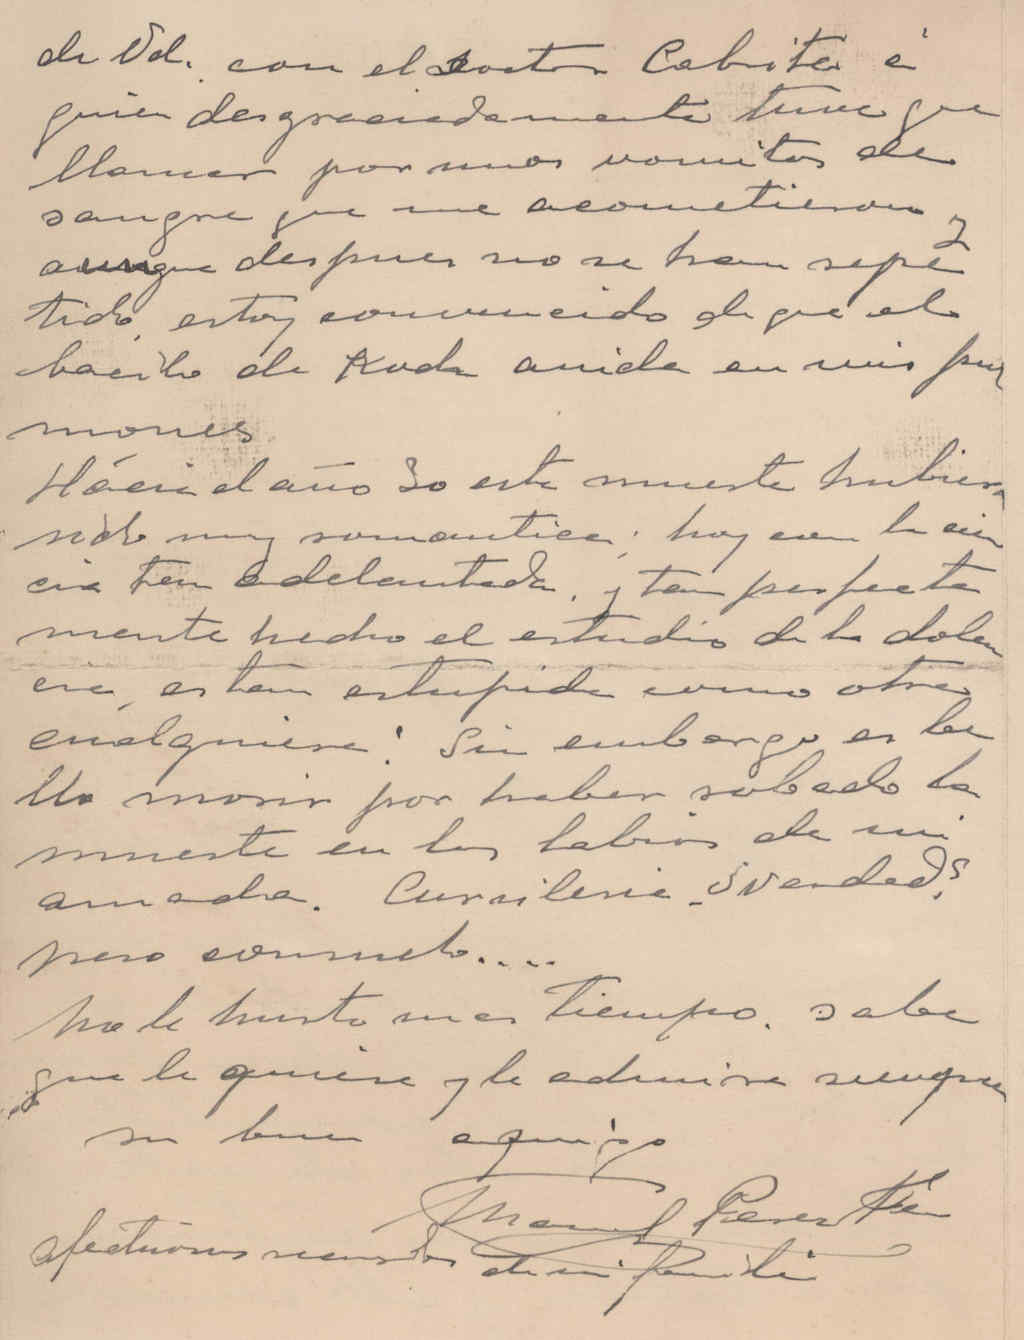 de Vd. con el doctor Cabrita á
quien desgraciadamente tuve que
llamar por unos vomitos de
sangre que me acometieron, y
aunque despues no se han repe
tido, estoy convencido de que el
bacilo de Koch anida en mis pul
mones
Hácia el año 30 esta muerte hubiera
sido muy romantica; hoy con la cien
cia tan adelantada, y tan perfecta
mente hecho el estudio de la dolen
cia, es tan estupida como otra
cualquiera! Sin embargo es be
llo morir por haber robado la
muerte en los labios de mi
amada. Cursileria ¿verdad?
pero consuelo....
No le hurto mas tiempo. sabe
que le quiere y le admira siempre
su buen amigo
Manuel Perez
afectuosos recuerdos de mi familia